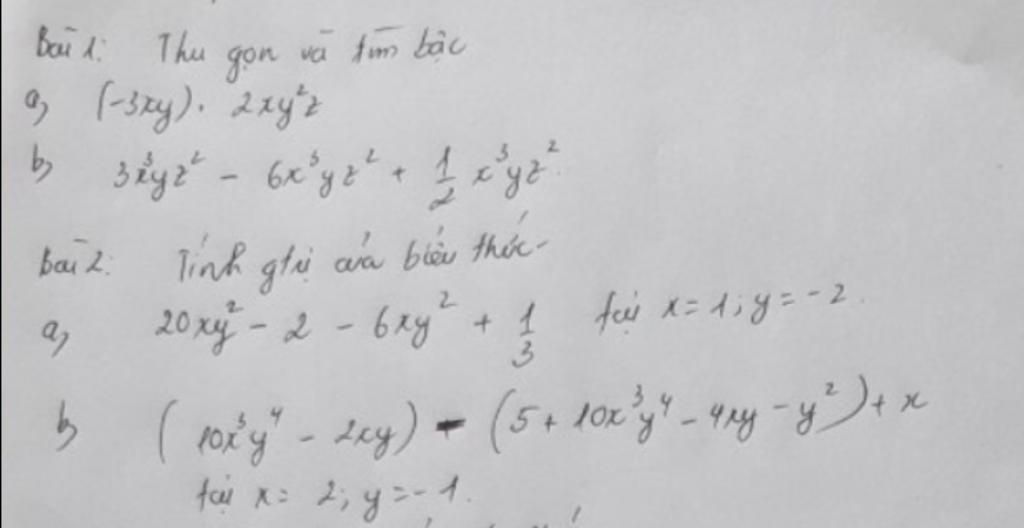 Bài 1: Thu gọn và tìm bậc
a) (-3xy). 2xy²z
b) 3x³yz² - 6x³yz² + 1/2 x³yz²
Bài 2: Tính gtrị của biểu thức
a) 20xy² - 2 - 6xy² + 1/3 tại x = 1; y = -2.
b) (10x³y⁴ - 2xy) - (5 + 10x³y⁴ - 4xy - y²) + x
tại x = 2; y = -1.